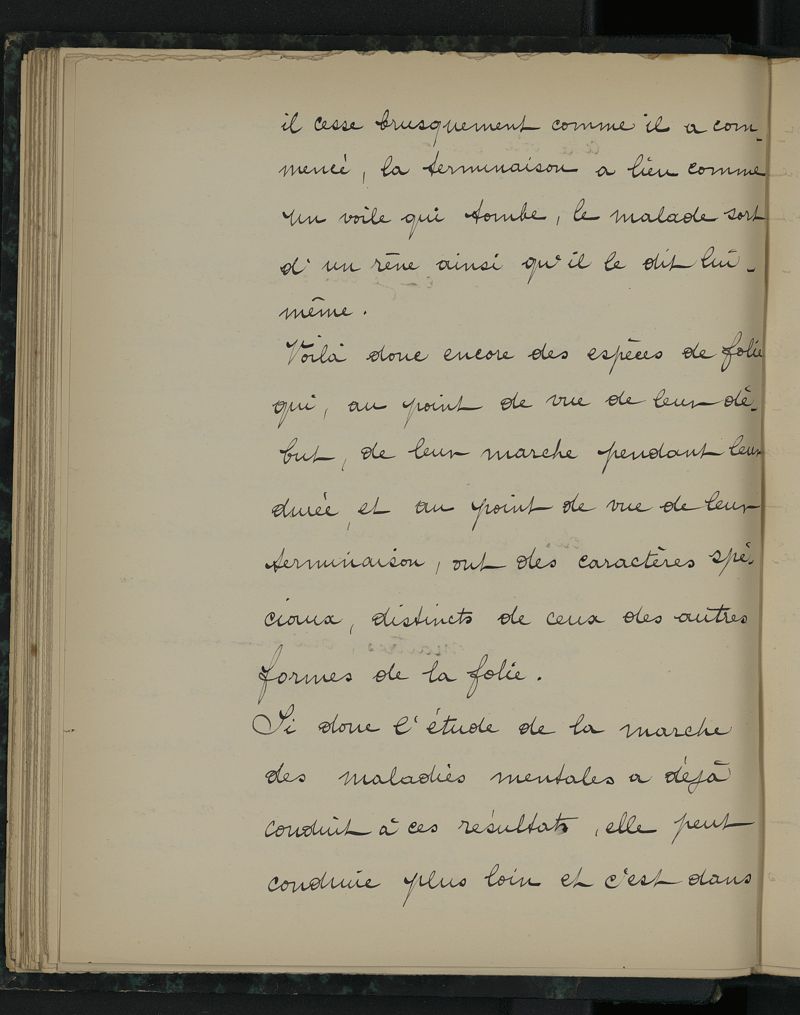 il cesse brusquement comme il a com-
mencé, la terminaison a lieu comme
un voile qui tombe, le malade sort
d'un rêve ainsi qu'il le dit lui-
même.
Voilà donc encore des espèces de folie
qui, au point de vue de leur dé-
but, de leur marche pendant leur
durée, et au point de vue de leur
terminaison, ont des caractères spé-
ciaux, distincts de ceux des autres
formes de la folie.
Si donc l'étude de la marche
des maladies mentales a déjà
conduit à ces résultats, elle peut
conduire plus loin et c'est dans